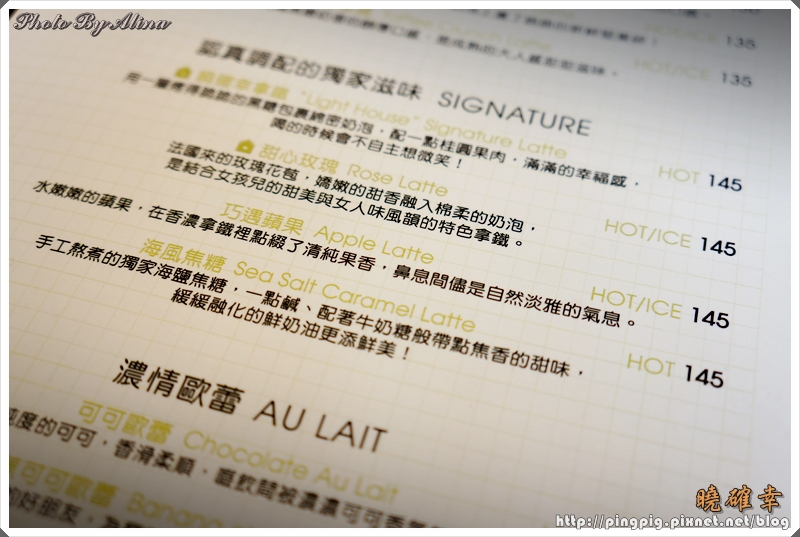 Photo By Alina
HOT/ICE 135
HOT/ICE 135
認真調配的獨家滋味 SIGNATURE
曉確幸拿鐵 "Light House" Signature Latte
HOT 145
用一層烤得脆脆的黑糖包裹綿密奶泡,配一點桂圓果肉,滿滿的幸福感,
喝的時候會不自主想微笑!
甜心玫瑰 Rose Latte
HOT/ICE 145
法國來的玫瑰花苞,嬌嫩的甜香融入棉柔的奶泡,
是結合女孩兒的甜美與女人味風韻的特色拿鐵。
巧遇蘋果 Apple Latte
HOT/ICE 145
水嫩嫩的蘋果,在香濃拿鐵裡點綴了清純果香,鼻息間儘是自然淡雅的氣息。
海風焦糖 Sea Salt Caramel Latte
HOT 145
手工熬煮的獨家海鹽焦糖,一點鹹、配著牛奶糖般帶點焦香的甜味,
緩緩融化的鮮奶油更添鮮美!
濃情歐蕾 AU LAIT
可可歐蕾 Chocolate Au Lait
度的可可,香滑柔順,
可可歐蕾 Banana
的好朋友,
曉確幸
http://pingpig.pixnet.net/blog